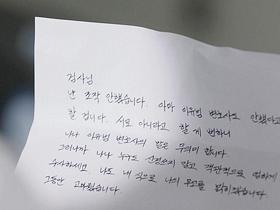 검사님
난 조작 안했습니다. 아마 이유범 변호사도 안했다고
할 겁니다. 서로 아니라고 할 게 뻔하니
나나 이유범 변호사의 말은 무의미 합니다.
그러니까 나나 누구도 신경쓰지 말고 객관적으로 엄하게
수사하세요. 나도 내 힘으로 나의 무고를 밝히겠습니다.
그동안 고마웠습니다.